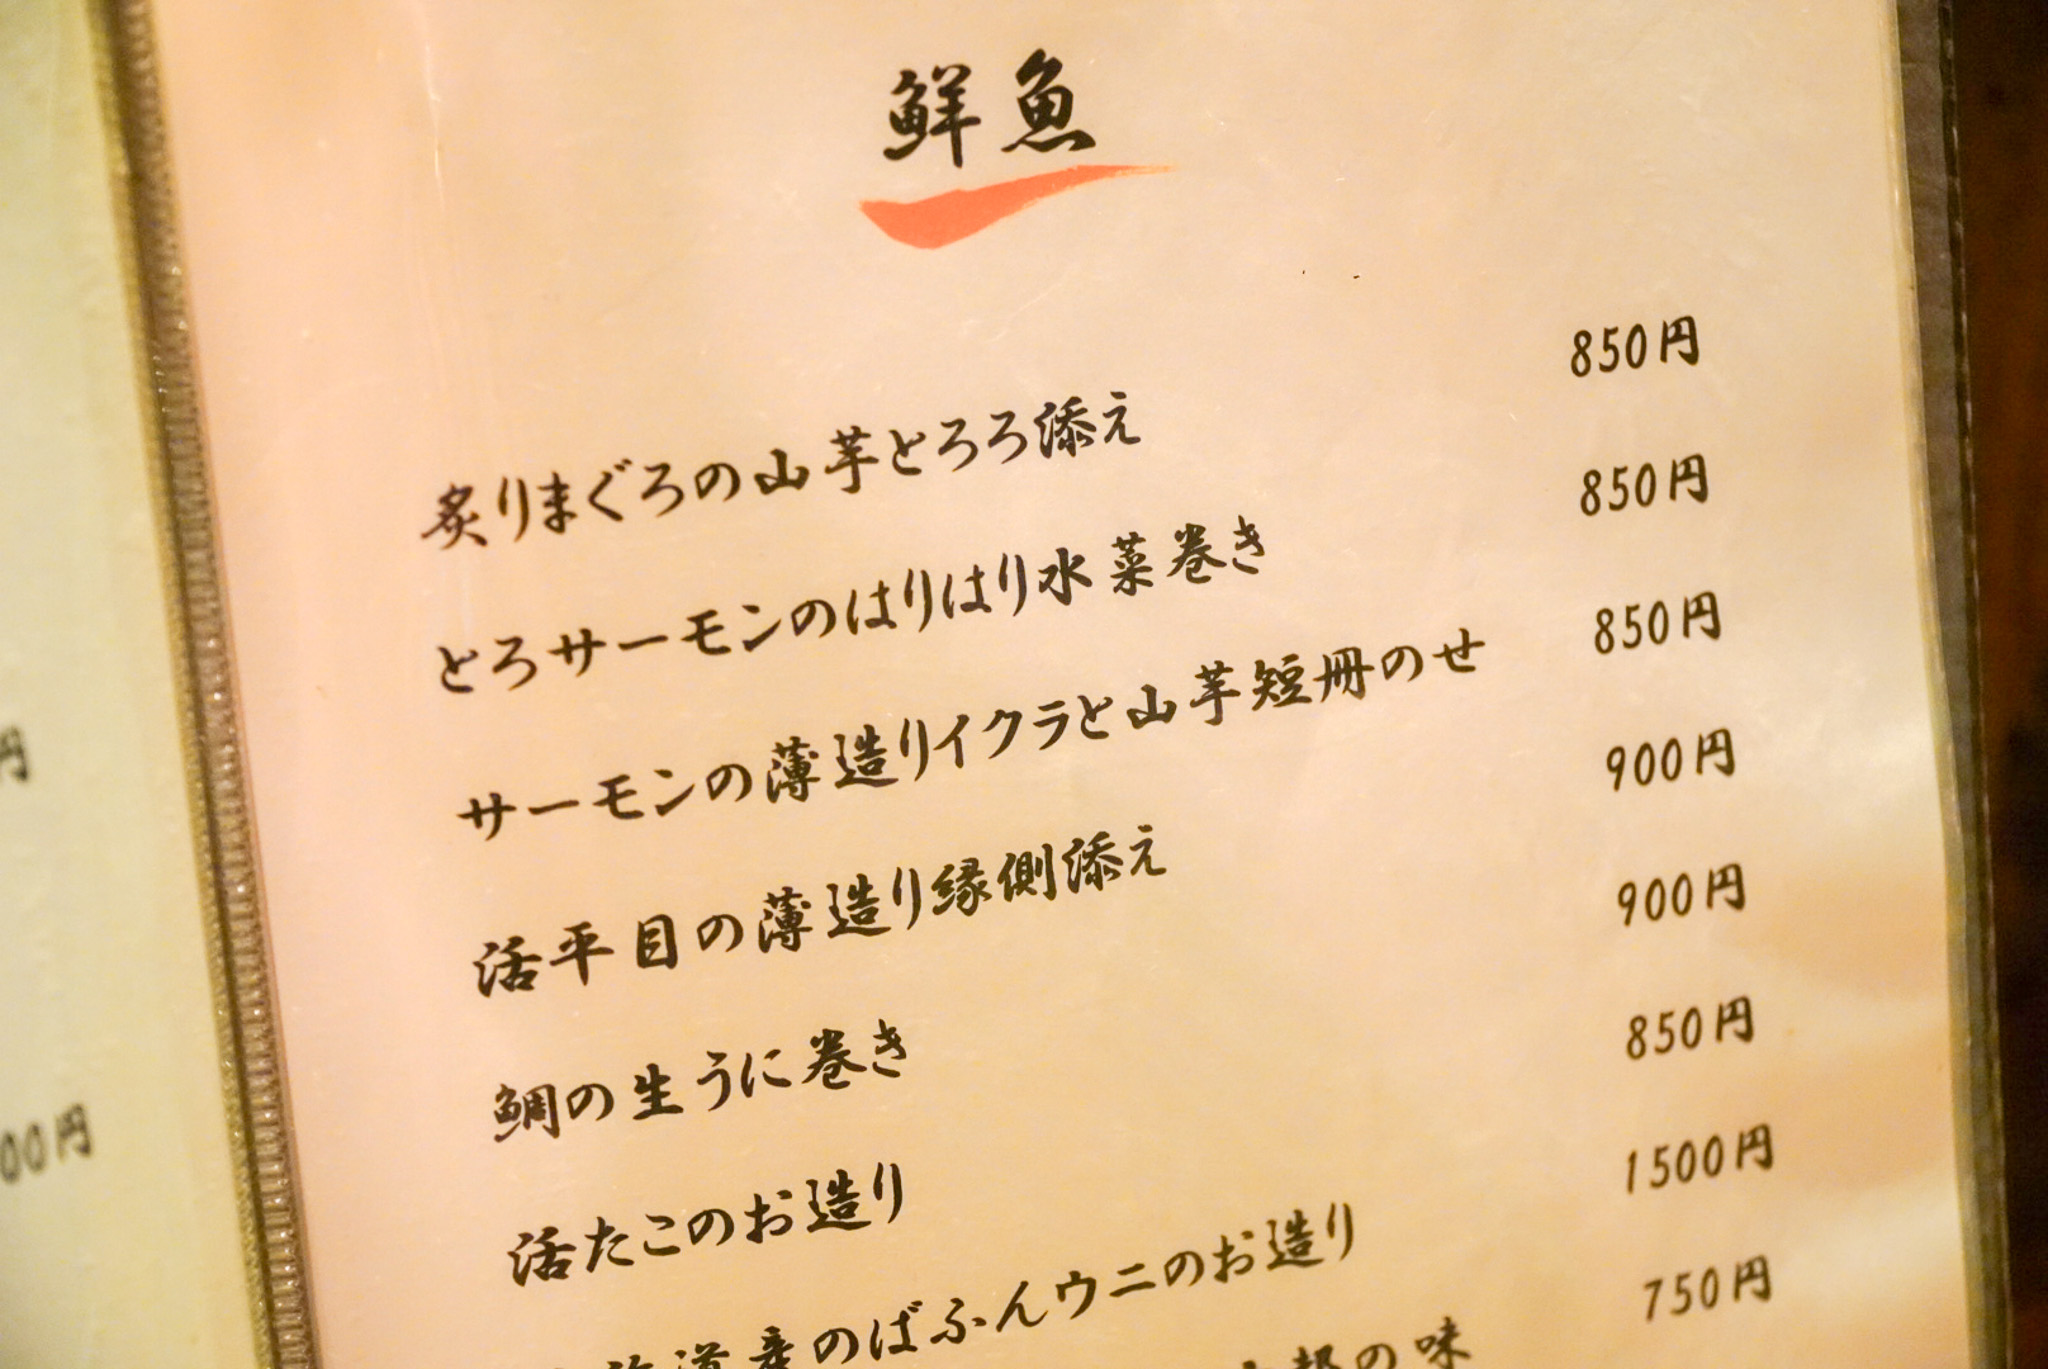 鮮魚
炙りまぐろの山芋とろろ添え 850円
とろサーモンのはりはり水菜巻き 850円
サーモンの薄造りイクラと山芋短冊のせ 850円
活平目の薄造り縁側添え 900円
鯛の生うに巻き 900円
活たこのお造り 850円
海道産のばふんウニのお造り 1500円
の味 750円
円
00円